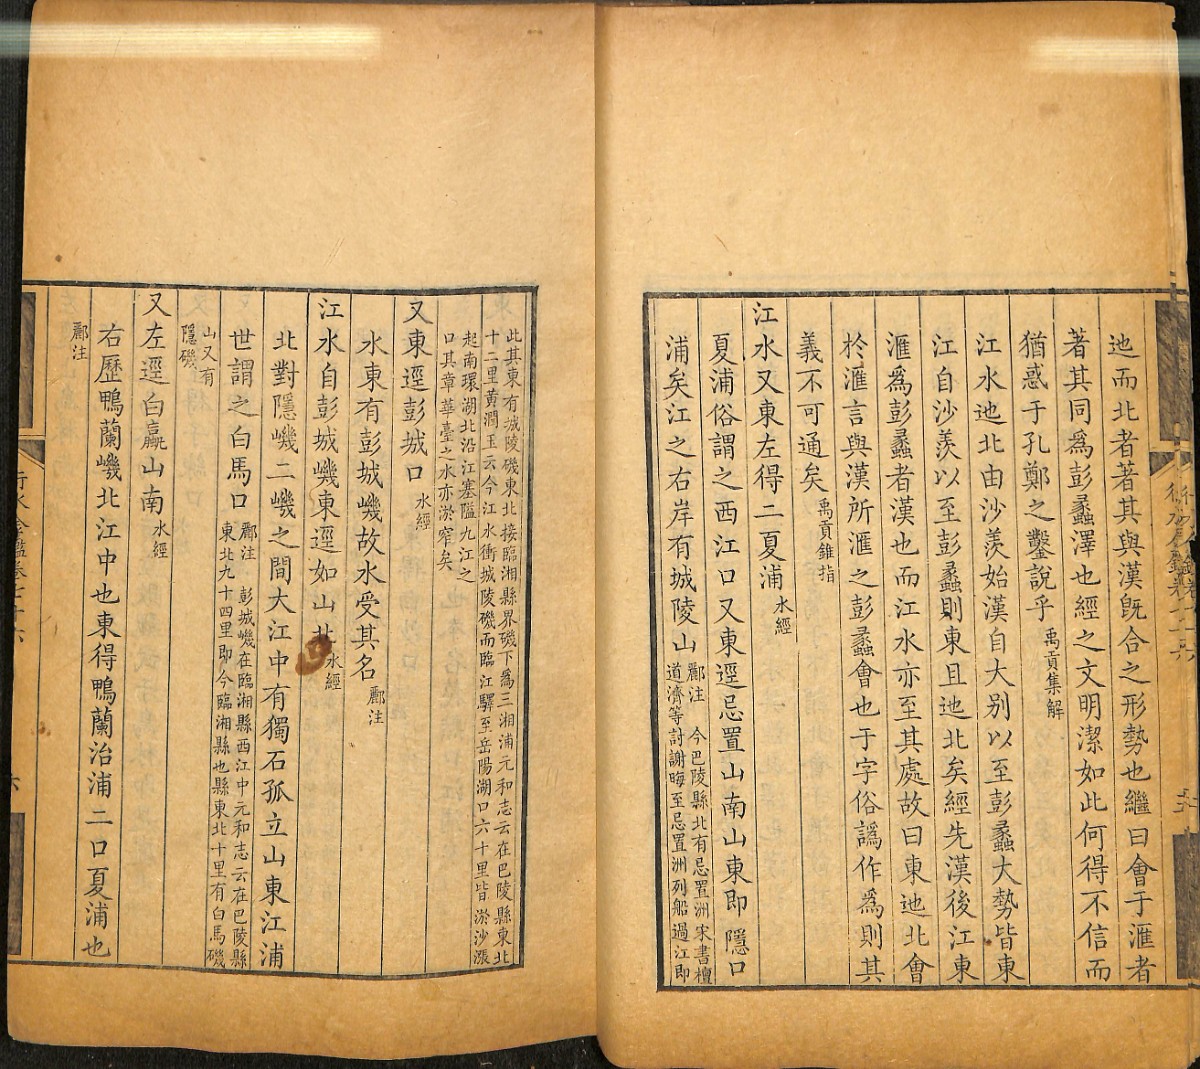 迆而北者著其與漢旣合之形勢也繼曰會于滙者
著其同爲彭蠡澤也經之文明潔如此何得不信而
猶惑于孔鄭之鑿說乎禹貢集解
江水迆北由沙羨始漢自大别以至彭蠡大勢皆東
江自沙羨以至彭蠡則東且迆北矣經先漢後江東
滙爲彭蠡者漢也而江水亦至其處故曰東迆北會
於滙言與漢所滙之彭蠡會也于字俗譌作爲則其
義不可通矣禹貢錐指
江水又東左得二夏浦水經
夏浦俗謂之西江口又東逕忌置山南山東即隱口
浦矣江之右岸有城陵山酈注 今巴陵縣北有忌置洲宋書檀
道濟等討謝晦至忌置洲列船過江即
此其東有城陵磯東北接臨湘縣界磯下爲三湘浦元和志云在巴陵縣東北
十二里黄潤玉云今江水衝城陵磯而臨江驛至岳陽湖口六十里皆淤沙漲
起南環湖北沿江塞隘九江之
口其章華臺之水亦淤窄矣
又東逕彭城口水經
水東有彭城嘰故水受其名酈注
江水自彭城嘰東逕如山北水經
北對隱嘰二嘰之間大江中有獨石孤立山東江浦
世謂之白馬口酈注 彭城嘰在臨湘縣西江中元和志云在巴陵縣
東北九十四里即今臨湘縣也縣東北十里有白馬磯
山又有
隱磯
又左逕白蠃山南水經
右歷鴨蘭嘰北江中也東得鴨蘭治浦二口夏浦也
酈注
行水金鑑卷七十六
六